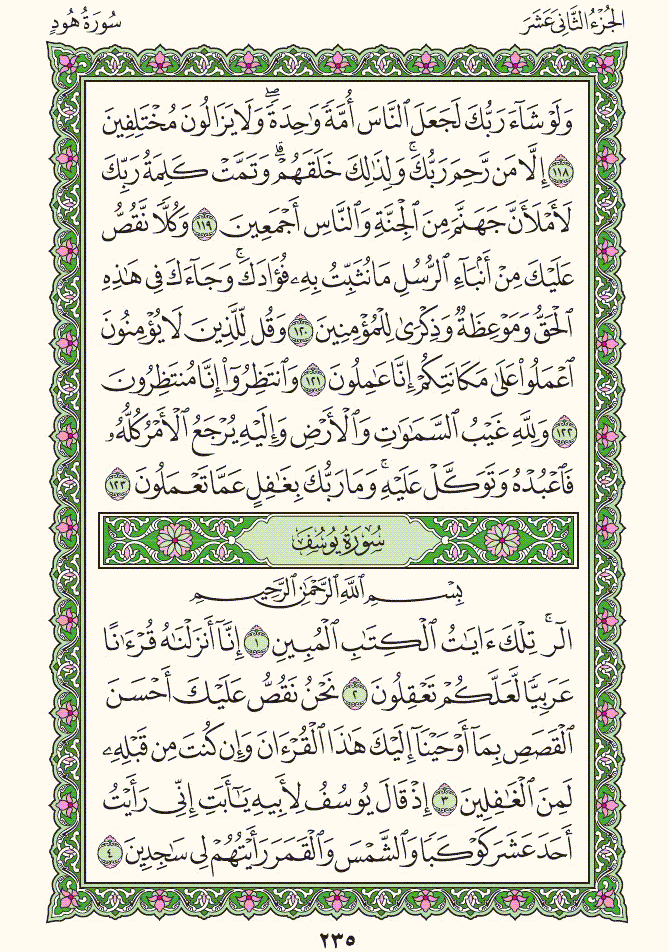 الجُزْءُ الثَّانِي عَشَرَ
سُورَةُ هُودٍ
وَلَوْ شَآءَ رَبُّكَ لَجَعَلَ ٱلنَّاسَ أُمَّةً وَٰحِدَةً ۖ وَلَا يَزَالُونَ مُخْتَلِفِينَ
١١٨ إِلَّا مَن رَّحِمَ رَبُّكَ ۚ وَلِذَٰلِكَ خَلَقَهُمْ ۗ وَتَمَّتْ كَلِمَةُ رَبِّكَ
لَأَمْلَأَنَّ جَهَنَّمَ مِنَ ٱلْجِنَّةِ وَٱلنَّاسِ أَجْمَعِينَ ١١٩ وَكُلًّا نَّقُصُّ
عَلَيْكَ مِنْ أَنۢبَآءِ ٱلرُّسُلِ مَا نُثَبِّتُ بِهِۦ فُؤَادَكَ ۚ وَجَآءَكَ فِى هَٰذِهِ
ٱلْحَقُّ وَمَوْعِظَةٌ وَذِكْرَىٰ لِلْمُؤْمِنِينَ ١٢٠ وَقُل لِّلَّذِينَ لَا يُؤْمِنُونَ
ٱعْمَلُوا۟ عَلَىٰ مَكَانَتِكُمْ إِنَّا عَٰمِلُونَ ١٢١ وَٱنتَظِرُوٓا۟ إِنَّا مُنتَظِرُونَ
١٢٢ وَلِلَّهِ غَيْبُ ٱلسَّمَٰوَٰتِ وَٱلْأَرْضِ وَإِلَيْهِ يُرْجَعُ ٱلْأَمْرُ كُلُّهُۥ
فَٱعْبُدْهُ وَتَوَكَّلْ عَلَيْهِ ۚ وَمَا رَبُّكَ بِغَٰفِلٍ عَمَّا تَعْمَلُونَ ١٢٣
سُورَةُ يُوسُفَ
بِسْمِ ٱللَّهِ ٱلرَّحْمَٰنِ ٱلرَّحِيمِ
الٓر ۚ تِلْكَ ءَايَٰتُ ٱلْكِتَٰبِ ٱلْمُبِينِ ١ إِنَّآ أَنزَلْنَٰهُ قُرْءَٰنًا
عَرَبِيًّا لَّعَلَّكُمْ تَعْقِلُونَ ٢ نَحْنُ نَقُصُّ عَلَيْكَ أَحْسَنَ
ٱلْقَصَصِ بِمَآ أَوْحَيْنَآ إِلَيْكَ هَٰذَا ٱلْقُرْءَانَ وَإِن كُنتَ مِن قَبْلِهِۦ
لَمِنَ ٱلْغَٰفِلِينَ ٣ إِذْ قَالَ يُوسُفُ لِأَبِيهِ يَٰٓأَبَتِ إِنِّى رَأَيْتُ
أَحَدَ عَشَرَ كَوْكَبًا وَٱلشَّمْسَ وَٱلْقَمَرَ رَأَيْتُهُمْ لِى سَٰجِدِينَ ٤
٢٣٥